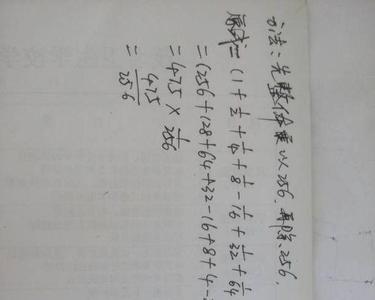 方法：先整体乘以256，再除256.
原式＝(1＋1/2＋1/4＋1/8－1/16＋1/32＋1/64
＝(256＋128＋64＋32－16＋8＋4－
＝475×1/256
＝475/256